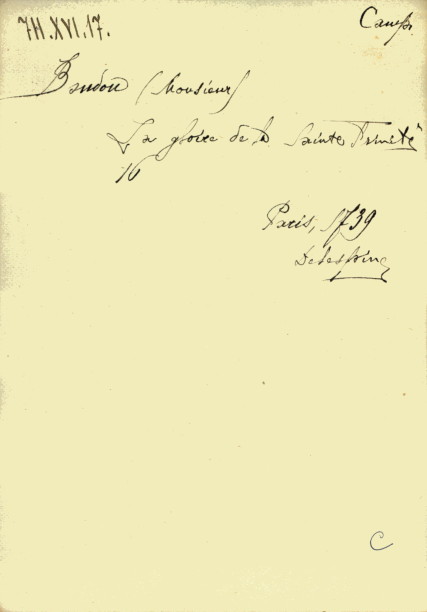 7H.XVI.17.
Camp.
Boudon (Monsieur)
La gloire de la Sainte Trinité
16
Paris, 1739
Delespine
C